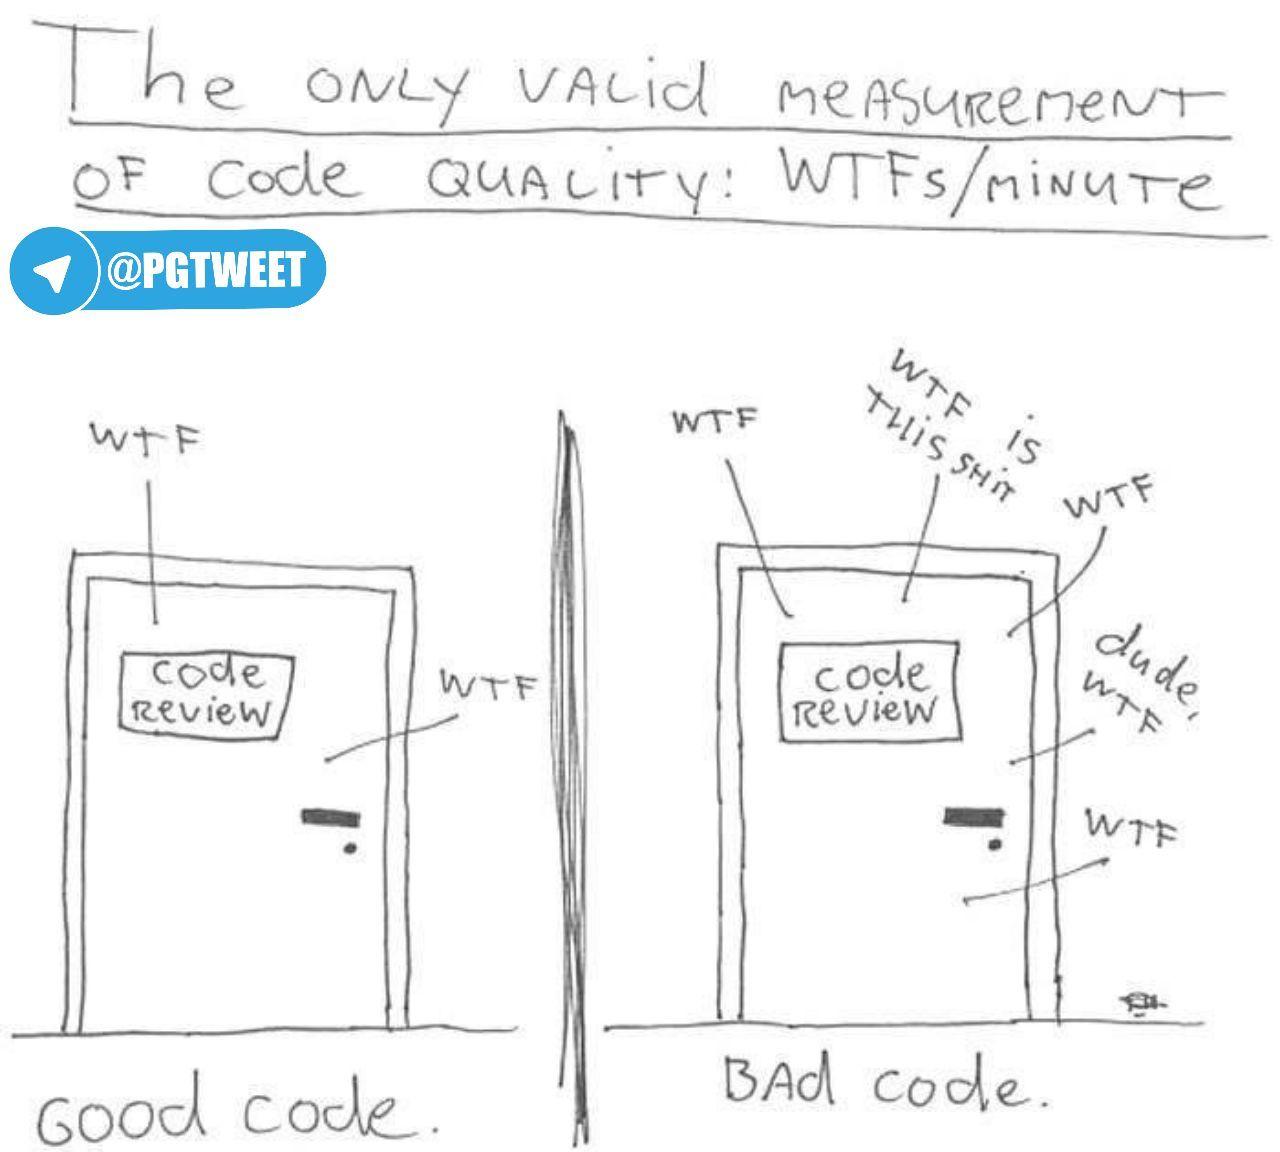 The ONLY VALid MEASUREMENT
OF Code QUALITY: WTFs/MINUTE
@PGTWEET
WTF
code
REViEW
WTF
GOOD code.
WTF
WTF is
THiS SHiT
WTF
code
REViEW
dude,
WTF
WTF
BAd code.